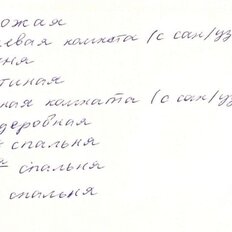 ожая
евая комната (с сан/уз
ня
тиная
ная комната (с сан/уз
деровная
спальня
спальня
спальня